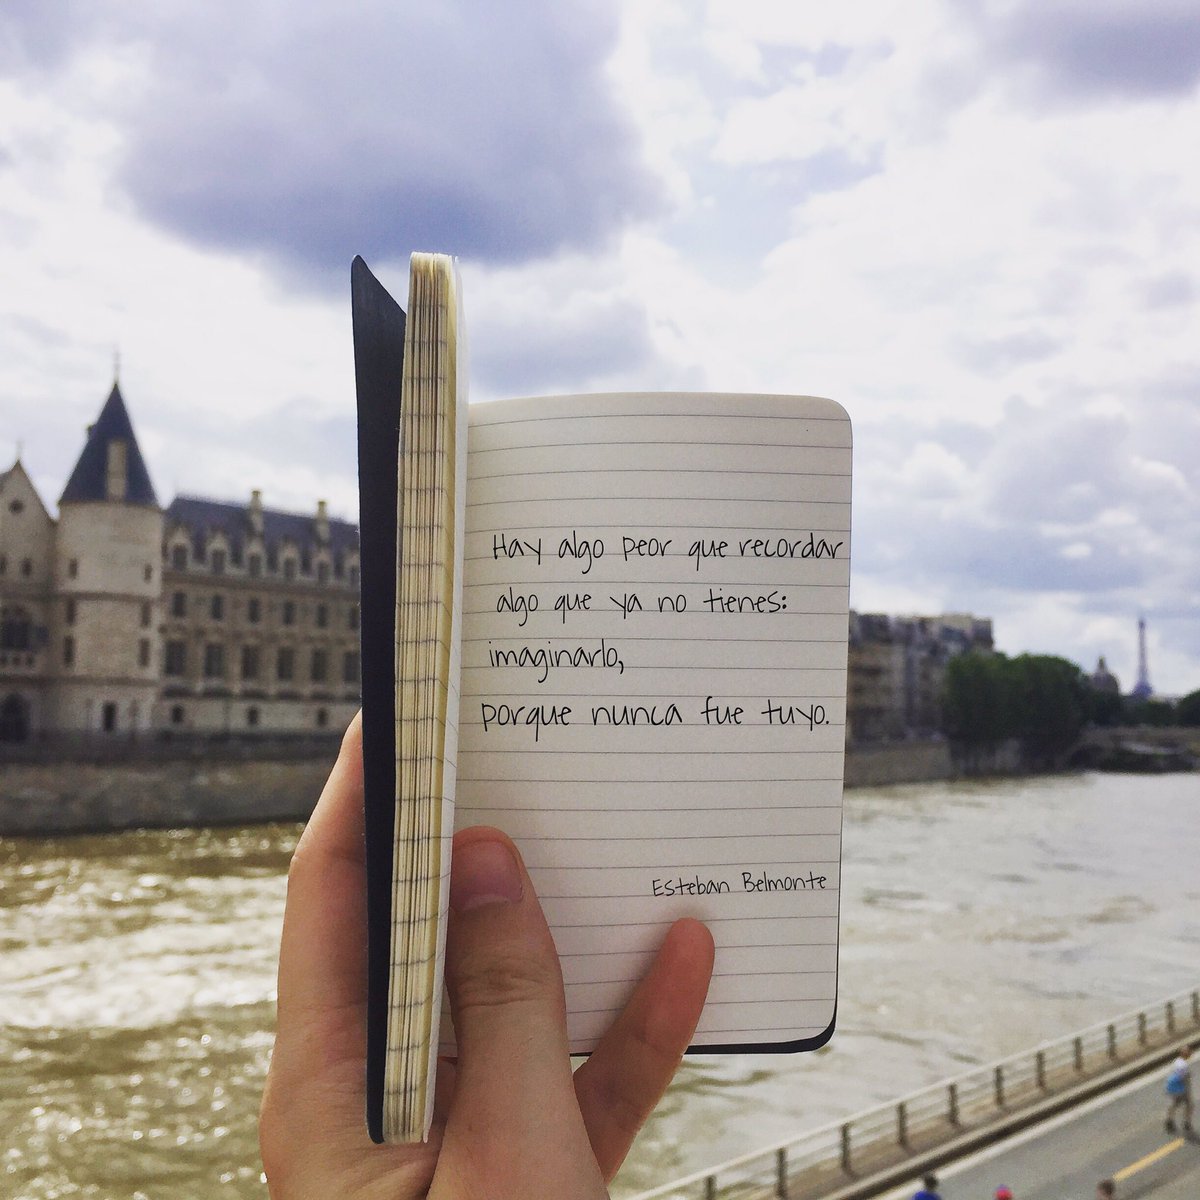 Hay algo peor que recordar
algo que ya no tienes:
imaginarlo,
porque nunca fue tuyo.
Esteban Belmonte